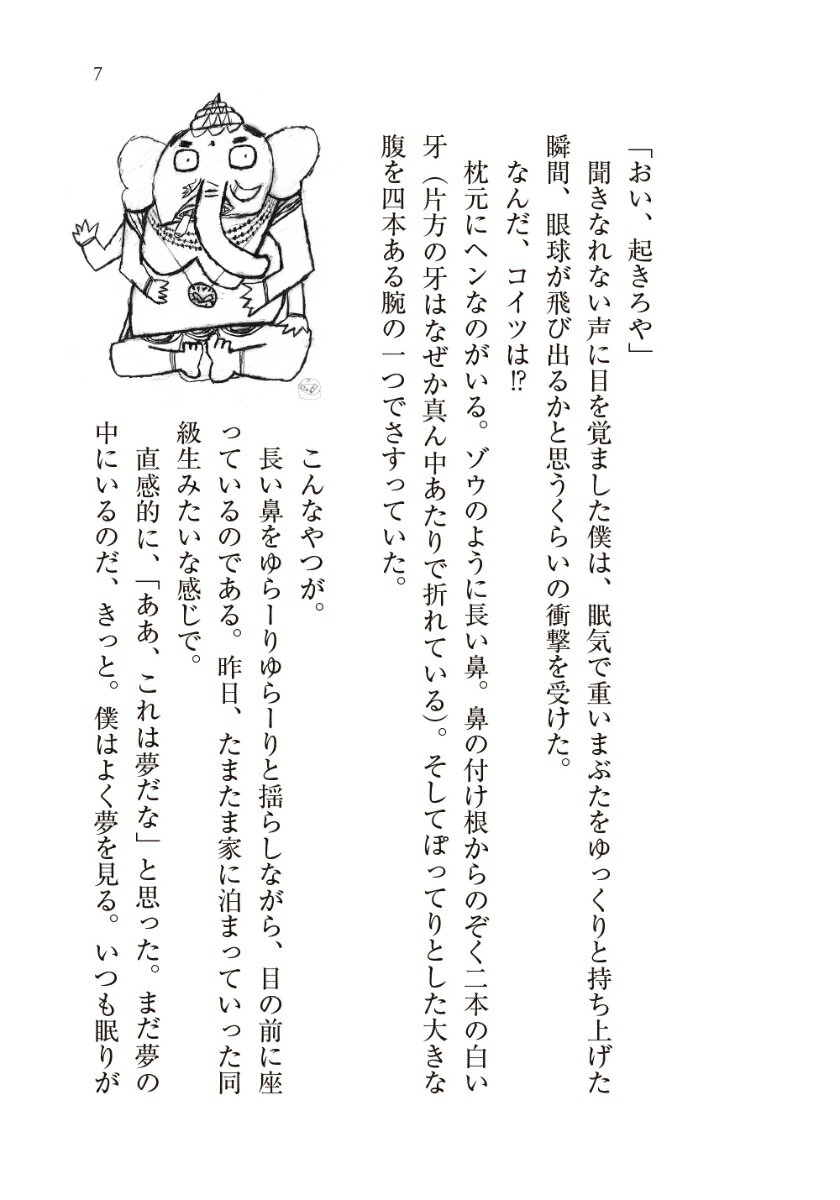 7
「おい、起きろや」
聞きなれない声に目を覚ました僕は、眠気で重いまぶたをゆっくりと持ち上げた
瞬間、眼球が飛び出るかと思うくらいの衝撃を受けた。
なんだ、コイツは⁉
枕元にヘンなのがいる。ゾウのように長い鼻。鼻の付け根からのぞく二本の白い
牙（片方の牙はなぜか真ん中あたりで折れている）。そしてぽってりとした大きな
腹を四本ある腕の一つでさすっていた。
こんなやつが。
長い鼻をゆらーりゆらーりと揺らしながら、目の前に座
っているのである。昨日、たまたま家に泊まっていった同
級生みたいな感じで。
直感的に、「ああ、これは夢だな」と思った。まだ夢の
中にいるのだ、きっと。僕はよく夢を見る。いつも眠りが